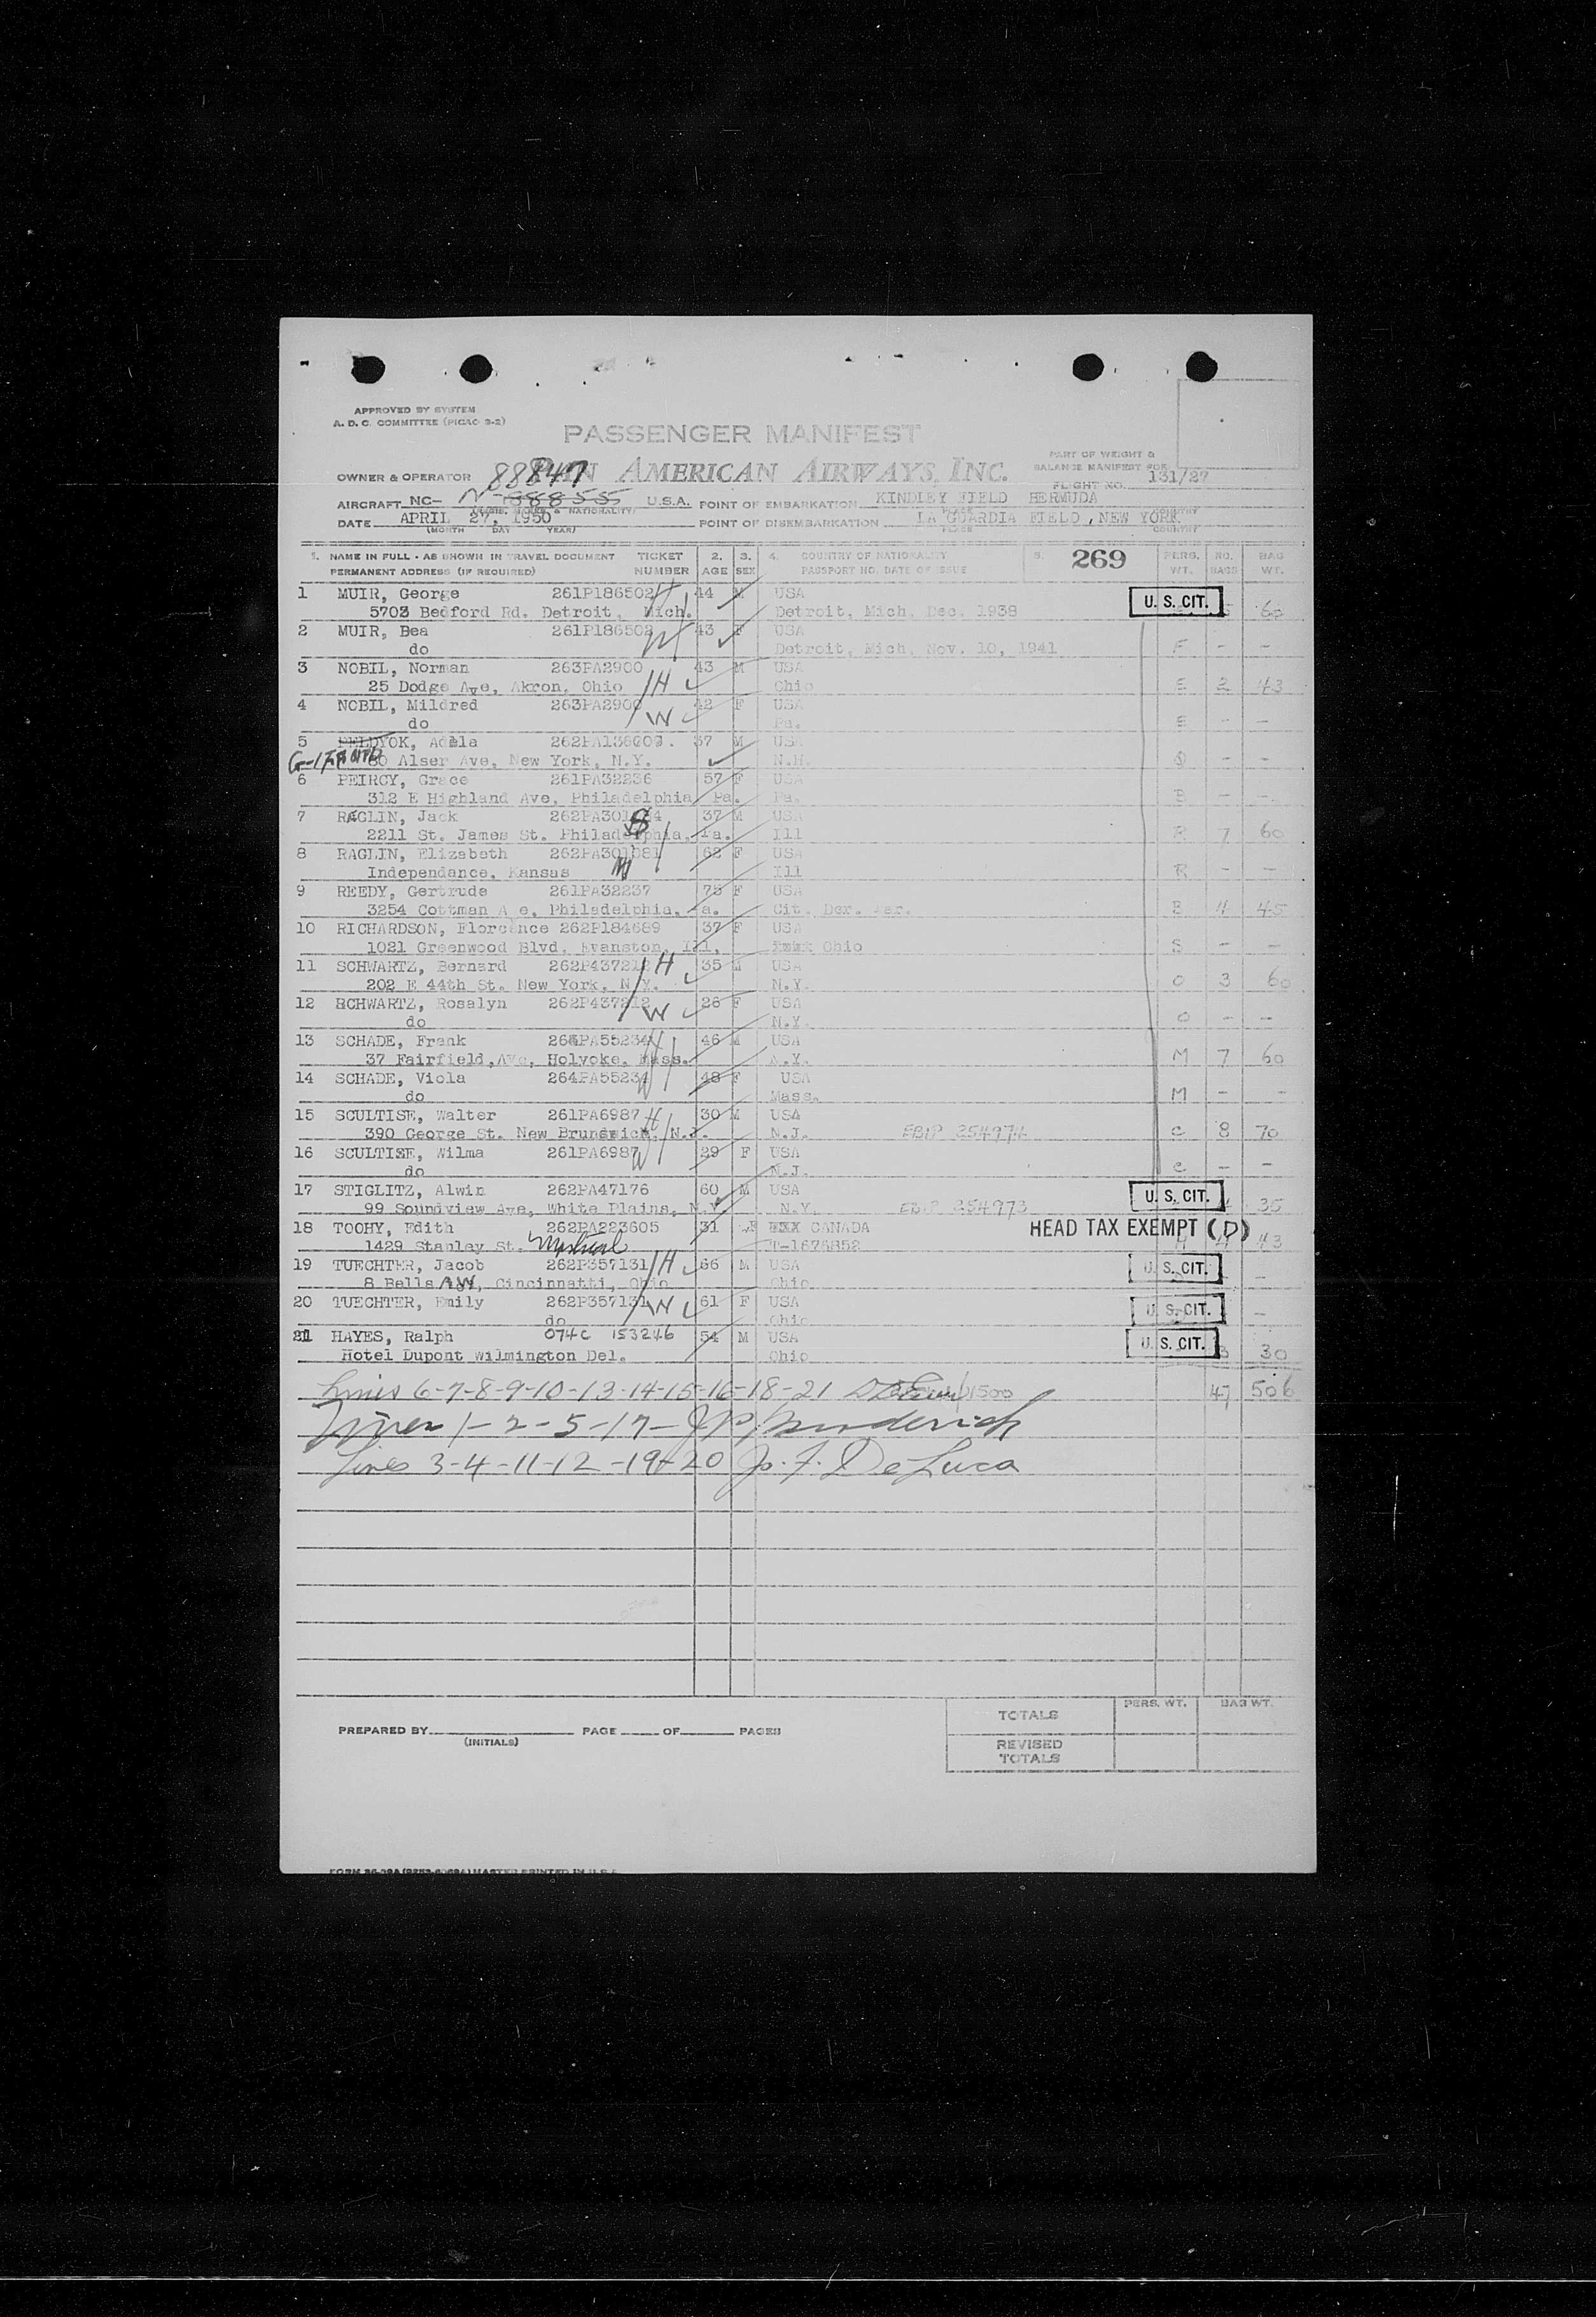 APPROVED BY SYSTEM
A. D. C. COMMITTEE (PICAO 3-2)
PASSENGER MANIFEST
PART OF WEIGHT &
BALANCE MANIFEST FOR
FLIGHT NO. 131/27
OWNER & OPERATOR PAN AMERICAN AIRWAYS, INC.
88847
AIRCRAFT NC- N-888555 U.S.A. POINT OF EMBARKATION KINDLEY FIELD BERMUDA
DATE APRIL 27, 1950 POINT OF DISEMBARKATION LA GUARDIA FIELD, NEW YORK
(MONTH DAY YEAR) PLACE COUNTRY
1. NAME IN FULL - AS SHOWN IN TRAVEL DOCUMENT TICKET 2. 3. 4. COUNTRY OF NATIONALITY 5. 269 PERS. NO. BAG
PERMANENT ADDRESS (IF REQUIRED) NUMBER AGE SEX PASSPORT NO. DATE OF ISSUE WT. BAGS WT.
1 MUIR, George 261P186502 H 44 M USA U. S. CIT.
5703 Bedford Rd. Detroit, Mich. Detroit, Mich. Dec. 1938 60
2 MUIR, Bea 261P186502 W 43 F USA
do Detroit, Mich. Nov. 10, 1941 F - -
3 NOBIL, Norman 263PA2900 43 M USA
25 Dodge Ave, Akron, Ohio H Ohio E 2 43
4 NOBIL, Mildred 263PA2900 42 F USA
do W Pa. E - -
5 YOK, Adela 37 M USA
Alser Ave, New York, N.Y. N.H. - -
6 PEIRCY, Grace 261PA32236 57 F USA
312 E Highland Ave, Philadelphia, Pa. Pa. B - -
7 RAGLIN, Jack 37 M USA
2211 St. James St. Philadelphia, Pa. Ill R 7 60
8 RAGLIN, Elizabeth 262PA301081 62 F USA
Independance, Kansas Ill R - -
9 REEDY, Gertrude 261PA32237 75 F USA
3254 Cottman Ave, Philadelphia, Pa. Cit. Der. Par. B 4 45
10 RICHARDSON, Florcence 262P184689 37 F USA
1021 Greenwood Blvd, Evanston, Ill, Ohio S - -
11 SCHWARTZ, Bernard 262P437212 H 35 M USA
202 E 44th St. New York, N.Y. N.Y. O 3 60
12 SCHWARTZ, Rosalyn 262P437212 W 26 F USA
do N.Y. O - -
13 SCHADE, Frank 264PA55234 H 46 M USA
37 Fairfield, Ave, Holyoke, Mass. N.Y. M 7 60
14 SCHADE, Viola 264PA55234 W 48 F USA
do Mass. M - -
15 SCULTISE, Walter 261PA6987 H 30 M USA
390 George St. New Brunswick, N.J. N.J. EBIP 254974 C 8 70
16 SCULTISE, Wilma 261PA6987 W 29 F USA
do N.J. C - -
17 STIGLITZ, Alwin 262PA47176 60 M USA U. S. CIT.
99 Soundview Ave, White Plains, N.Y. N.Y. EBIP 254973 35
18 TOOHY, Edith 262PA223605 31 F CANADA HEAD TAX EXEMPT (D)
1429 Stanley St. Montreal T-1676852 H 4 43
19 TUECHTER, Jacob 262P357131 H 66 M USA U. S. CIT.
8 Bells , Cincinnatti, Ohio Ohio -
20 TUECHTER, Emily 262P357131 W 61 F USA U. S. CIT.
do Ohio -
21 HAYES, Ralph 074C 153246 54 M USA U. S. CIT.
Hotel Dupont Wilmington Del. Ohio 3 30
Lines 6-7-8-9-10-13-14-15-16-18-21 47 506
Lines 1-2-5-17- J P Broderick
Lines 3-4-11-12-19-20 Jo. F. DeLuca
PREPARED BY (INITIALS) PAGE OF PAGES
TOTALS PERS. WT. BAG WT.
REVISED
TOTALS